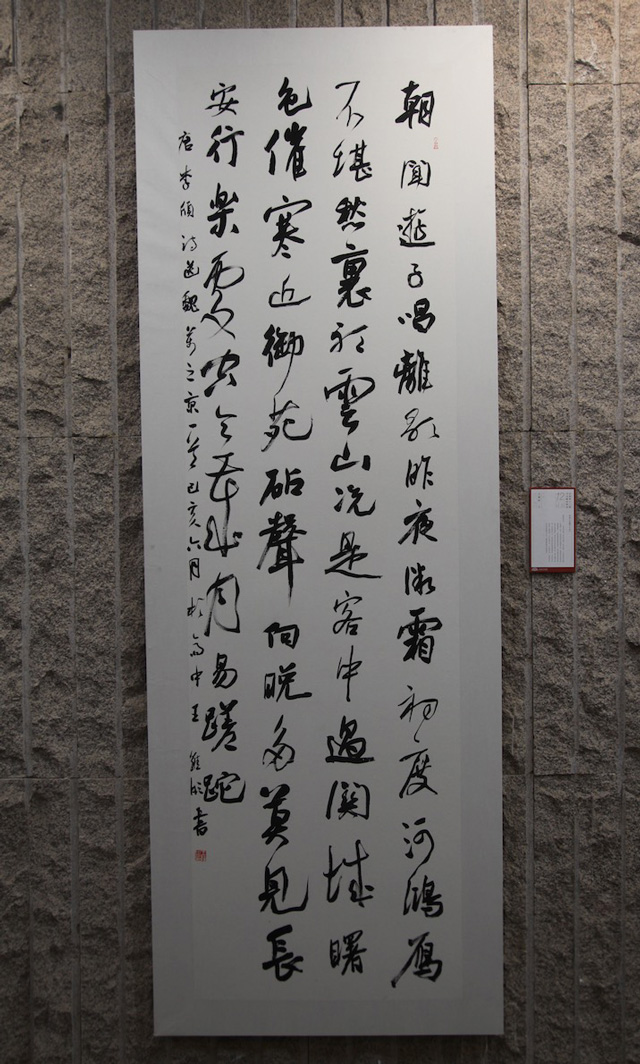 朝聞遊子唱離歌昨夜微霜初度河鴻鴈
不堪愁裏聽雲山況是客中過關城曙
色催寒近御苑砧聲向晚多莫見長
安行樂處空令歲月易蹉跎
唐李頎詩送魏萬之京一首己亥六月於高中王書